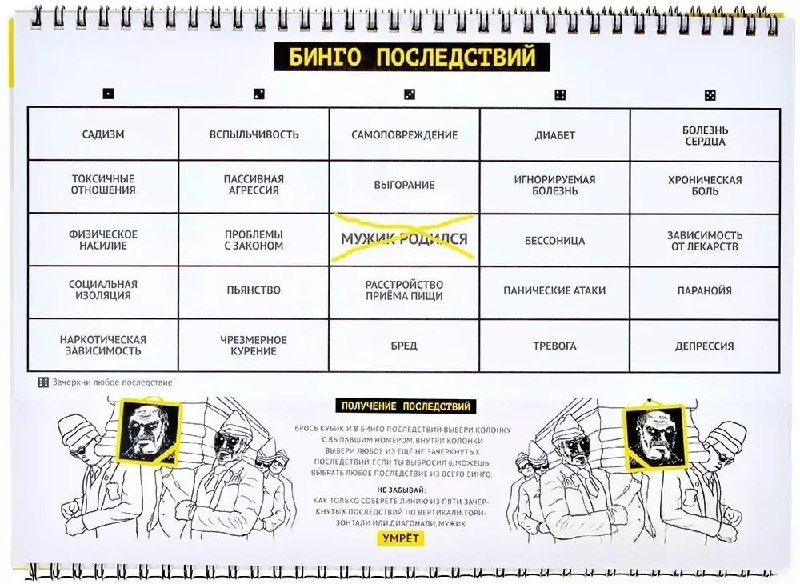 БИНГО ПОСЛЕДСТВИЙ
САДИЗМ
ВСПЫЛЬЧИВОСТЬ
САМОПОВРЕЖДЕНИЕ
ДИАБЕТ
БОЛЕЗНЬ
СЕРДЦА
ТОКСИЧНЫЕ
ОТНОШЕНИЯ
ПАССИВНАЯ
АГРЕССИЯ
ВЫГОРАНИЕ
ИГНОРИРУЕМАЯ
БОЛЕЗНЬ
ХРОНИЧЕСКАЯ
БОЛЬ
ФИЗИЧЕСКОЕ
НАСИЛИЕ
ПРОБЛЕМЫ
С ЗАКОНОМ
МУЖИК РОДИЛСЯ
БЕССОНИЦА
ЗАВИСИМОСТЬ
ОТ ЛЕКАРСТВ
СОЦИАЛЬНАЯ
ИЗОЛЯЦИЯ
ПЬЯНСТВО
РАССТРОЙСТВО
ПРИЁМА ПИЩИ
ПАНИЧЕСКИЕ АТАКИ
ПАРАНОЙЯ
НАРКОТИЧЕСКАЯ
ЗАВИСИМОСТЬ
ЧРЕЗМЕРНОЕ
КУРЕНИЕ
БРЕД
ТРЕВОГА
ДЕПРЕССИЯ
Зачеркни любое последствие
ПОЛУЧЕНИЕ ПОСЛЕДСТВИЙ
БРОСЬ КУБИК И В БИНГО ПОСЛЕДСТВИЙ ВЫБЕРИ КОЛОНКУ
С ВЫПАВШИМ НОМЕРОМ. ВНУТРИ КОЛОНКИ
ВЫБЕРИ ЛЮБОЕ ИЗ ЕЩЁ НЕ ЗАЧЕРКНУТЫХ
ПОСЛЕДСТВИЙ. ЕСЛИ ТЫ ВЫБРОСИЛ 6, МОЖЕШЬ
ВЫБРАТЬ ЛЮБОЕ ПОСЛЕДСТВИЕ ИЗ ВСЕГО БИНГО.
НЕ ЗАБЫВАЙ:
КАК ТОЛЬКО СОБЕРЕТЕ ЛИНИЮ ИЗ ПЯТИ ЗАЧЁР-
КНУТЫХ ПОСЛЕДСТВИЙ ПО ВЕРТИКАЛИ, ГОРИ-
ЗОНТАЛИ ИЛИ ДИАГОНАЛИ, МУЖИК
УМРЁТ